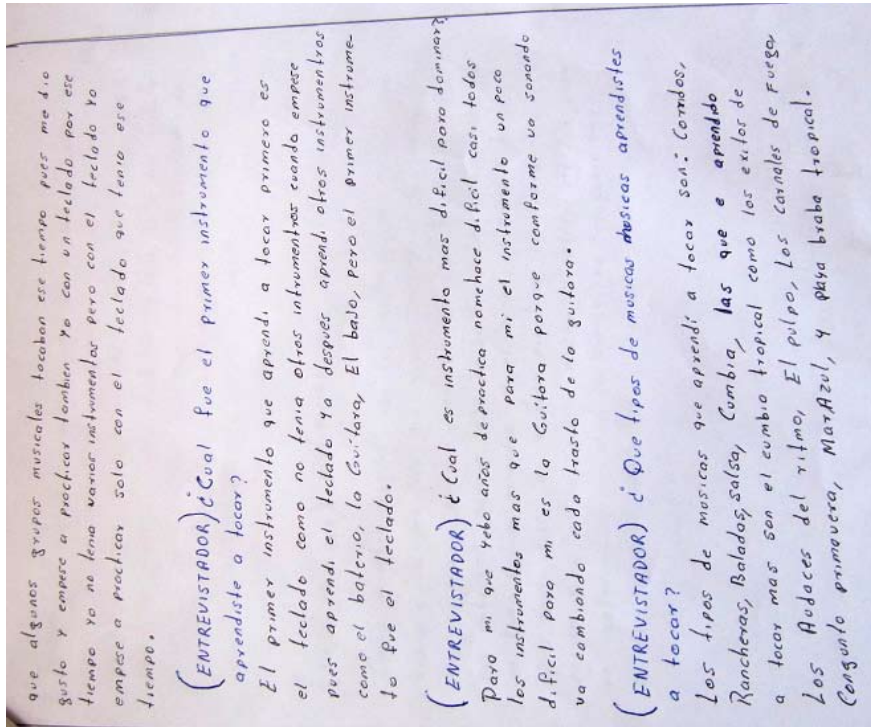 que algunos grupos musicales tocaban ese tiempo pues me dio
gusto y empese a practicar tambien yo con un teclado por ese
tiempo yo no tenia varios instrumentos pero con el teclado yo
empese a practicar solo con el teclado que tenia ese
tiempo.
(ENTREVISTADOR) ¿Cual fue el primer instrumento que
aprendiste a tocar?
El primer instrumento que aprendi a tocar primero es
el teclado como no tenia otros intrumentros cuando empese
pues aprendi el teclado ya despues aprendi otros instrumentros
como el bateria, la Guitara, El bajo, pero el primer instrume-
to fue el teclado.
(ENTREVISTADOR) ¿Cual es instrumento mas dificil para dominar?
Para mi que yebo años de practica nomehace dificil casi todos
los instrumentos mas que para mi el instrumento un poco
dificil para mi es la Guitara porque comforme va sonando
va cambiando cada trasto de la guitara.
(ENTREVISTADOR) ¿Que tipos de musicas musicas aprendistes
a tocar?
Los tipos de musicas que aprendi a tocar son: Corridos,
Rancheras, Baladas, salsa, Cumbia, las que e aprendido
a tocar mas son el cumbia tropical como los exitos de
Los Audaces del ritmo, El pulpo, Los Carnales de Fuego,
Congunto primavera, Mar Azul, y playa braba tropical.